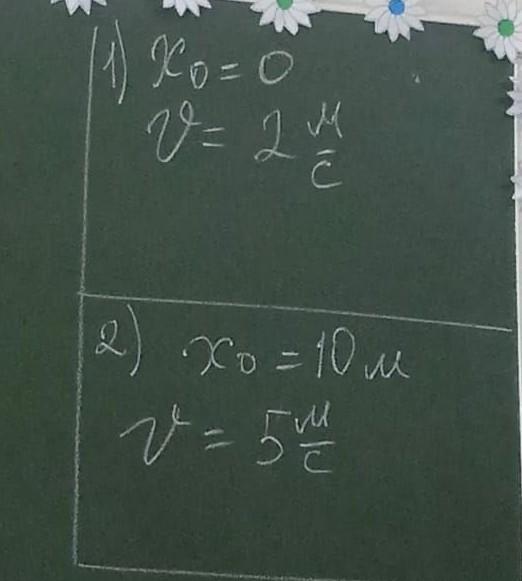 1) x₀ = 0
v = 2 м/с
2) x₀ = 10 м
v = 5 м/с